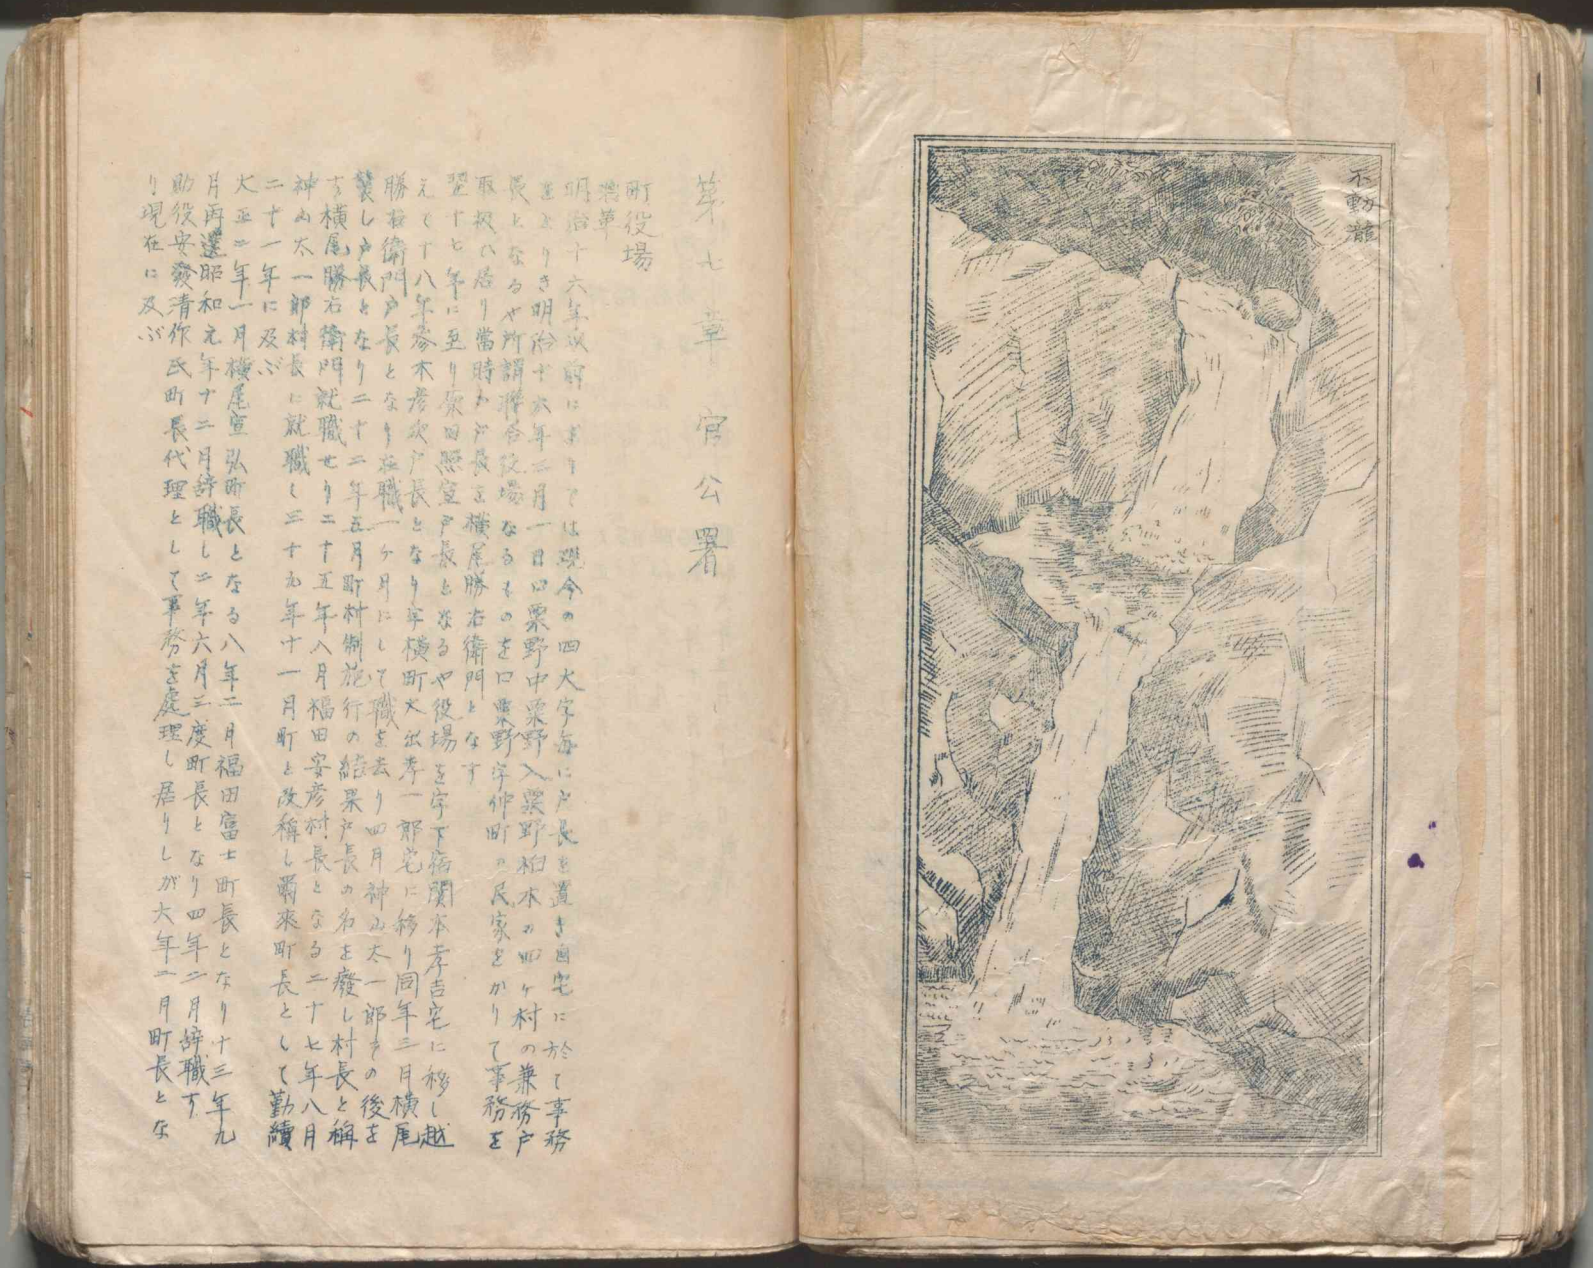 不動瀧
第七章 官公署
町役場
沿革
明治十六年以前にありては現今の四大字毎に戸長を置き自宅に於て事務
をとりき明治十六年三月一日口粟野中粟野入粟野柏木の四ヶ村の兼務戸
長となるや所謂聯合役場なるものを口粟野字仲町の民家をかりて事務を
取扱ひ居り當時の戸長を横尾勝右衛門となす
翌十七年に至り原田照宣戸長となるや役場を字下宿関本孝吉宅に移し越
えて十八年 木彦次戸長となり字横町大出孝一郎宅に移り同年三月横尾
勝右衛門戸長となり在職一ヶ月にして職を去り四月神山太一郎 の後を
襲し戸長となり二十二年五月町村制施行の結果戸長の名を廢し村長と稱
す横尾勝右衛門就職せり二十五年八月福田安彦村長となる二十七年八月
神山太一郎村長に就職し三十九年十一月町と改稱し爾来町長として勤續
二十一年に及ぶ
大正二年一月横尾宣弘町長となる八年二月福田富士町長となり十三年九
月再選昭和元年十二月辞職し二年六月三度町長となり四年二月辞職す
助役安發清作氏町長代理として事務を處理し居りしが六年二月町長とな
り現在に及ぶ